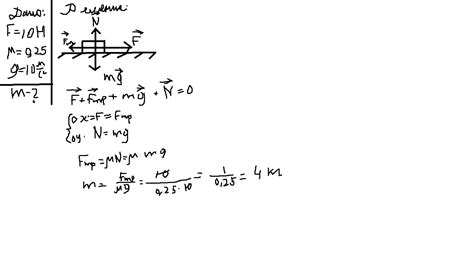 Дано:
F=10H
μ=0,25
g=10 м/с²
m-?
Решение:
N
Fтр
F
mg
F+Fтр+mg+N=0
ox:=F=Fтр
oy: N=mg
Fтр=μN=μ·mg
m= Fтр/μg = 10/0,25·10 = 1/0,25 = 4 кг